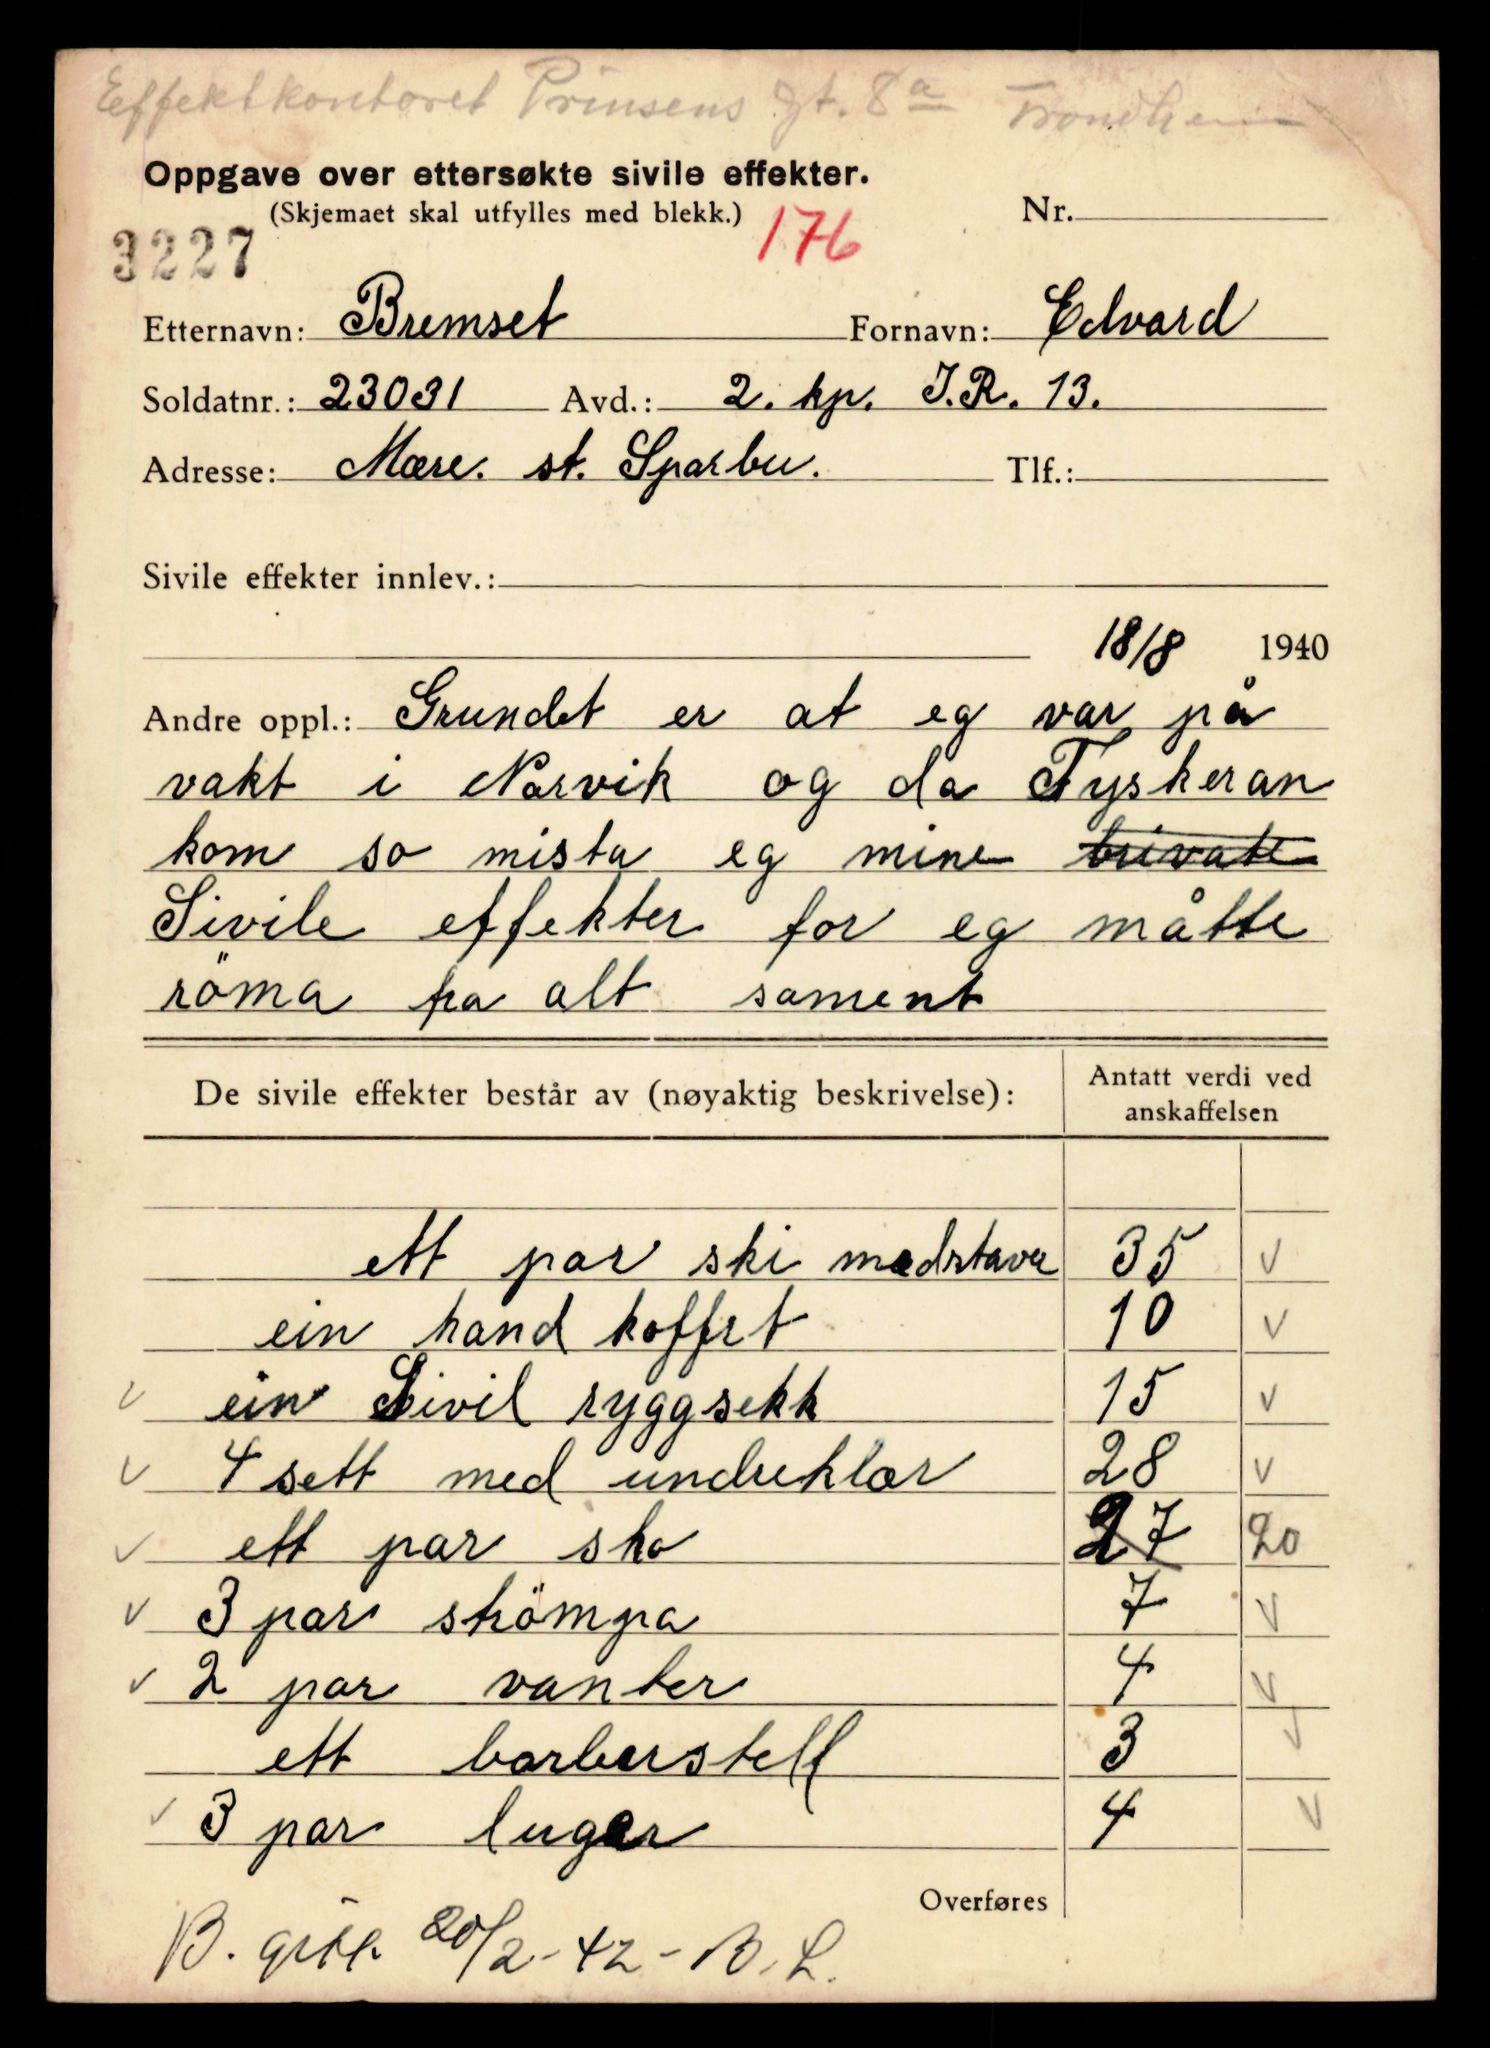 Effektkontoret Prinsens gt. 8a Trondheim
Oppgave over ettersøkte sivile effekter.
(Skjemaet skal utfylles med blekk.) 176 Nr.
3227
Etternavn: Bremset Fornavn: Edvard
Soldatnr.: 23031 Avd.: 2. kp. I.R. 13.
Adresse: Mære. st. Sparbu. Tlf.:
Sivile effekter innlev.:
18/8 1940
Andre oppl.: Grundet er at eg var på
vakt i Narvik og da Tyskeran
kom so mista eg mine brivate
Sivile effekter for eg måtte
röma fra alt sament
De sivile effekter består av (nøyaktig beskrivelse): Antatt verdi ved
anskaffelsen
ett par ski medstaver 35 v
ein hand koffet 10 v
v ein Sivil ryggsekk 15 v
v 4 sett med undreklær 28 v
v ett par sko 27 20
v 3 par strömpa 7 v
v 2 par vanter 4 v
ett barberstell 3 v
v 3 par luger 4 v
Overføres
B. 20/2-42- B.L.